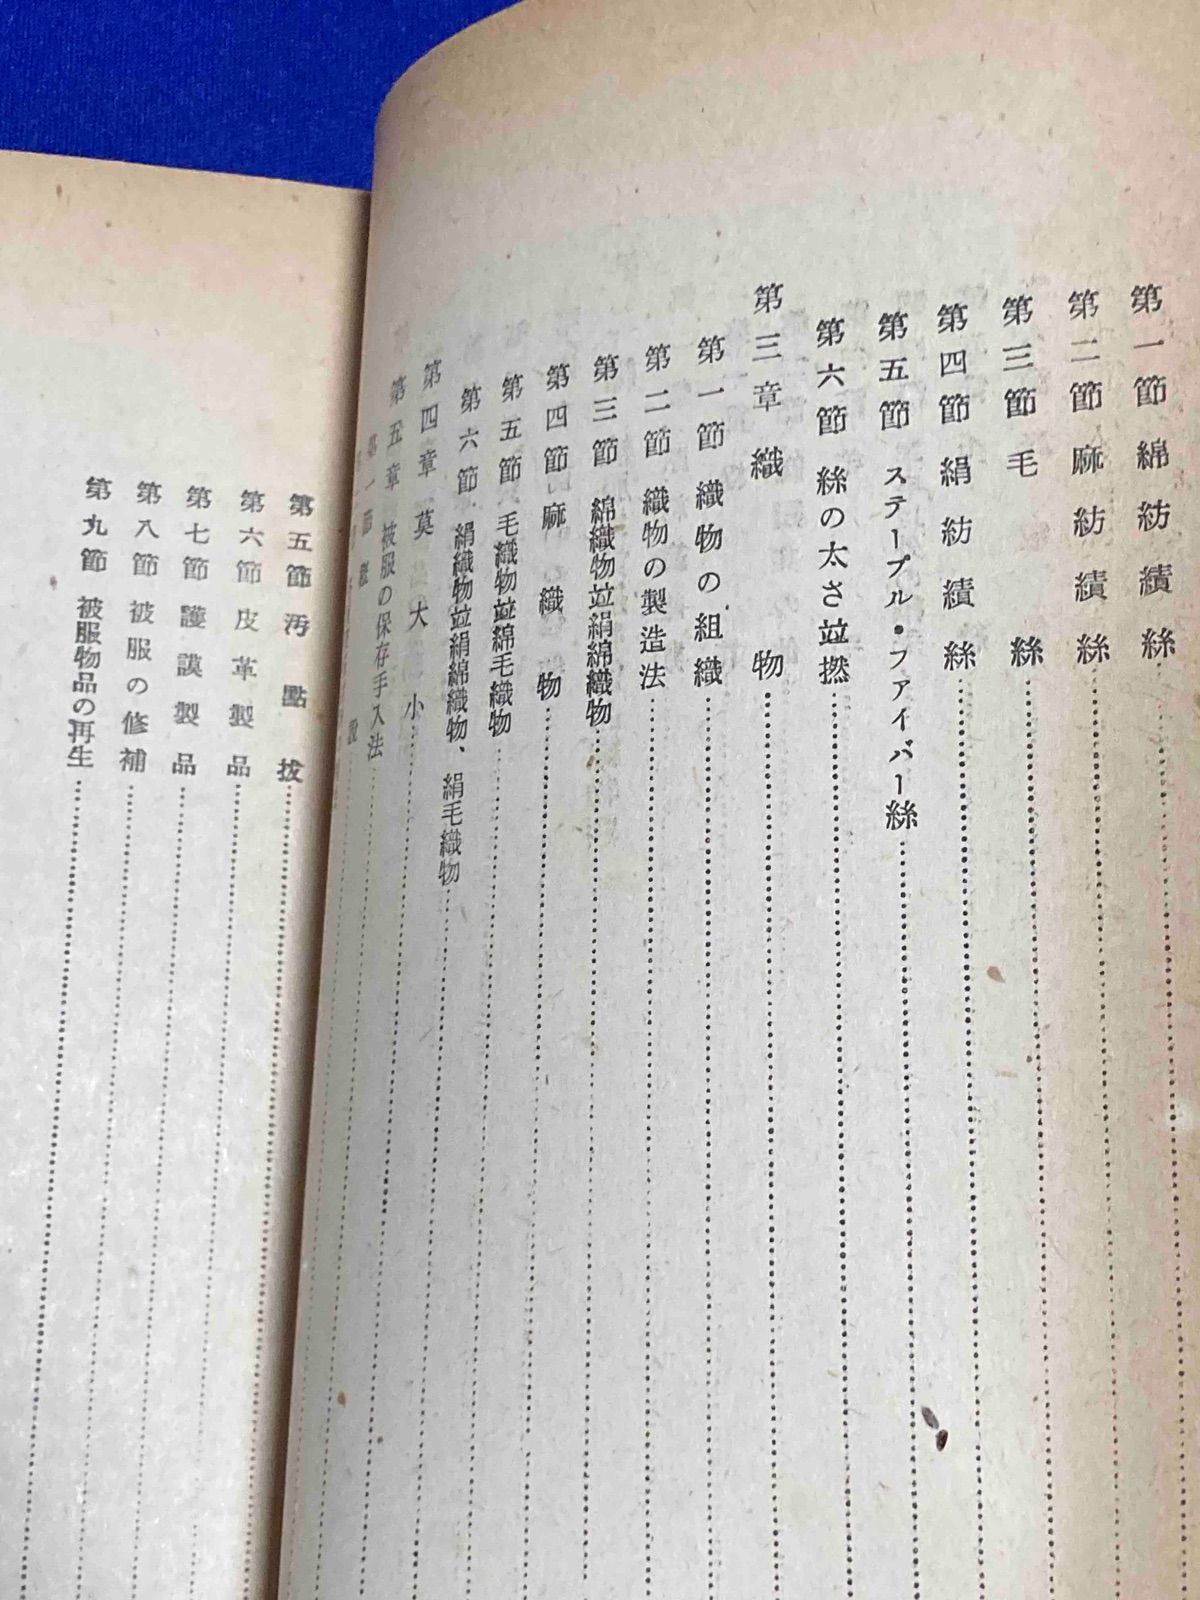 第一節 綿紡績絲
第二節 麻紡績絲
第三節 毛絲
第四節 絹紡績絲
第五節 ステープル・ファイバー絲
第六節 絲の太さ並撚
第三章 織物
第一節 織物の組織
第二節 織物の製造法
第三節 綿織物並絹綿織物
第四節 麻織物
第五節 毛織物並綿毛織物
第六節 絹織物並絹綿織物、絹毛織物
第四章 莫大小
第五章 被服の保存手入法
第一節 説
第五節 汚點拔
第六節 皮革製品
第七節 護謨製品
第八節 被服の修補
第九節 被服物品の再生